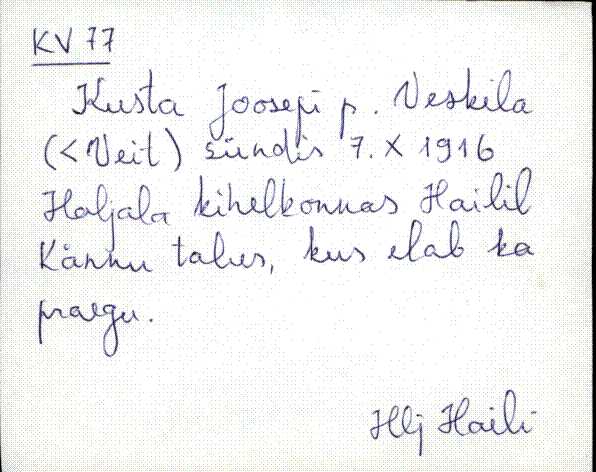 KV 77
Kusta Joosepi p. Veskila
(< Veit) sündis 7. X 1916
Haljala kihelkonnas Hailil
Kännu talus, kus elab ka
praegu.
Hlj Haili